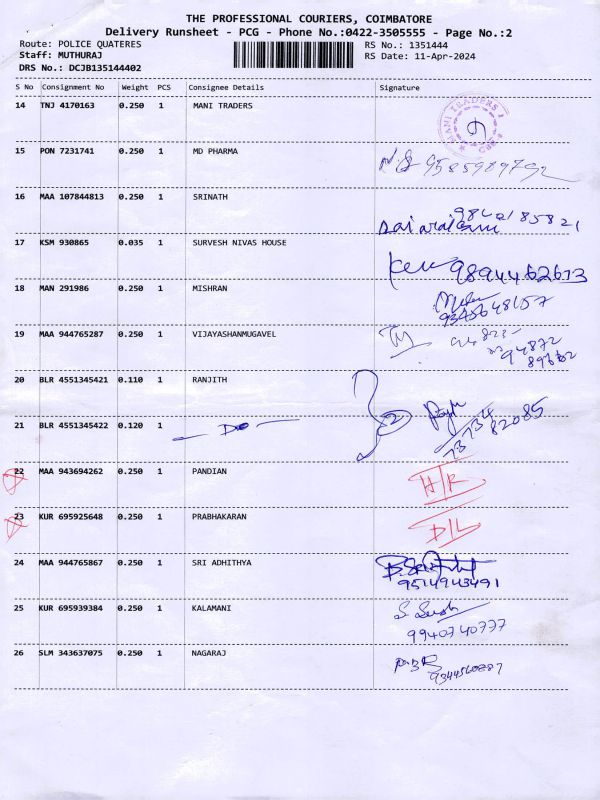 THE PROFESSIONAL COURIERS, COIMBATORE
Delivery Runsheet - PCG - Phone No.:0422-3505555 - Page No.:2
Route: POLICE QUATERES RS No.: 1351444
Staff: MUTHURAJ RS Date: 11-Apr-2024
DRS No.: DCJB135144402
S No Consignment No Weight PCS Consignee Details Signature
14 TNJ 4170163 0.250 1 MANI TRADERS
MANI TRADERS
15 PON 7231741 0.250 1 MD PHARMA
9585989792
16 MAA 107844813 0.250 1 SRINATH
17 KSM 930865 0.035 1 SURVESH NIVAS HOUSE
9894462613
18 MAN 291986 0.250 1 MISHRAN
9345648157
19 MAA 944765287 0.250 1 VIJAYASHANMUGAVEL
94872
20 BLR 4551345421 0.110 1 RANJITH
21 BLR 4551345422 0.120 1 - Do - 2
73734
82085
22 MAA 943694262 0.250 1 PANDIAN
23 KUR 695925648 0.250 1 PRABHAKARAN
D/L
24 MAA 944765867 0.250 1 SRI ADHITHYA
9514943491
25 KUR 695939384 0.250 1 KALAMANI
9940740777
26 SLM 343637075 0.250 1 NAGARAJ
9344560887